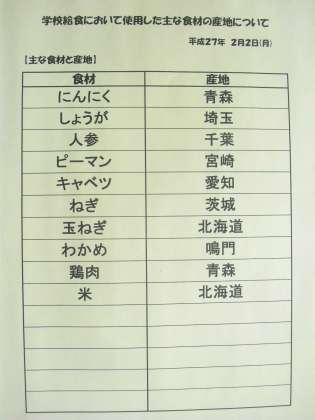 学校給食において使用した主な食材の産地について
平成27年 2月2日(月)
【主な食材と産地】
食材 産地
にんにく 青森
しょうが 埼玉
人参 千葉
ピーマン 宮崎
キャベツ 愛知
ねぎ 茨城
玉ねぎ 北海道
わかめ 鳴門
鶏肉 青森
米 北海道